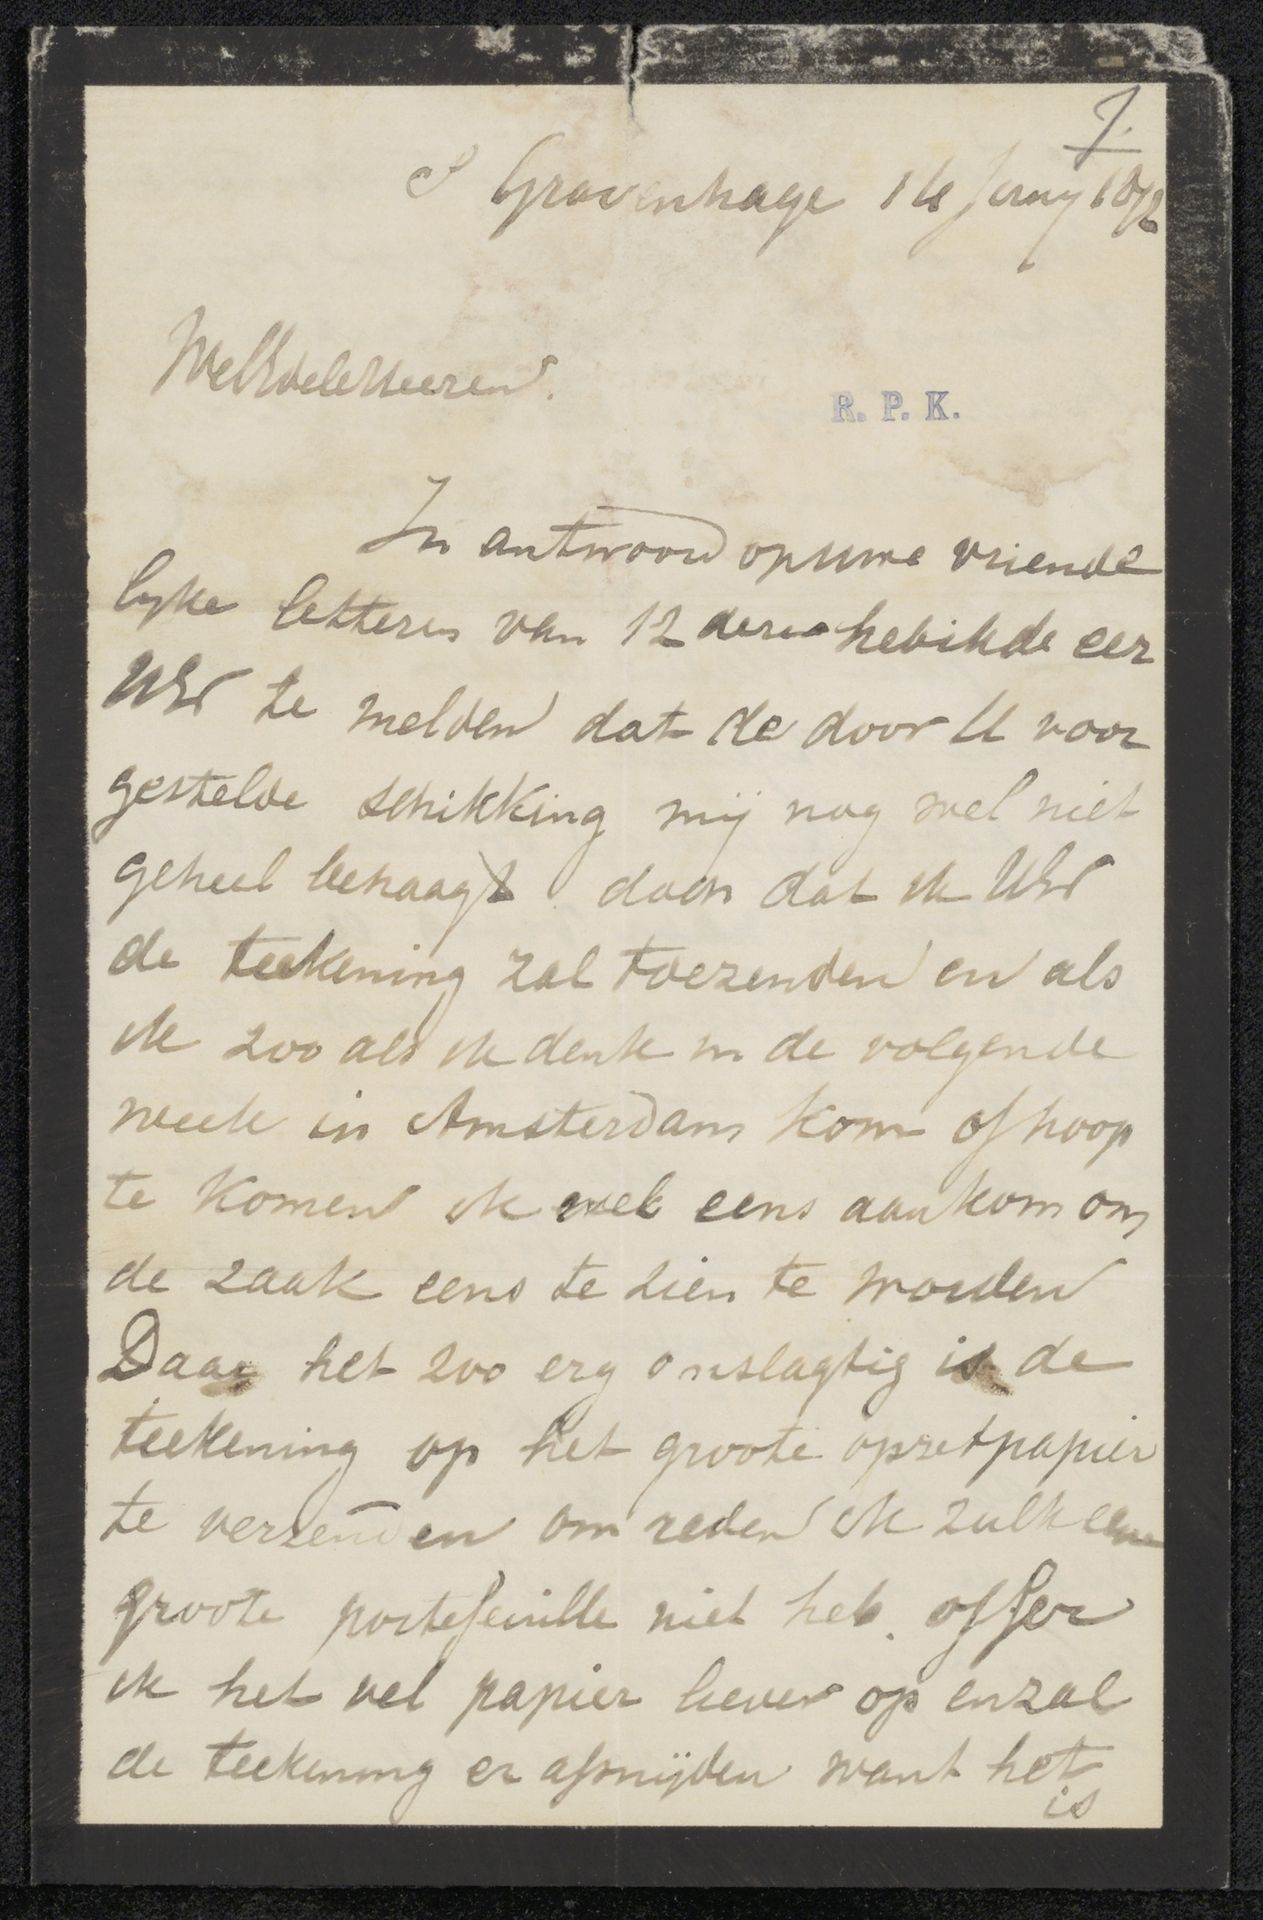 J.
S Gravenhage 14 Juny 1872
WelEdeleHeeren.
R. P. K.
In antwoord op uwe vriende
lyke letteren van 12 deres heb ik de eer
UEd te melden dat de door U voor
gestelde schikking mij nog wel niet
geheel behaagt doch dat ik UEd
de teekening zal toezenden en als
ik zoo als ik denk in de volgende
week in Amsterdam kom of hoop
te komen ik wel eens aankom om
de zaak eens te zien te worden
Daar het zoo erg omslagtig is de
teekening op het groote opzetpapier
te verzenden om reden ik zulk een
groote portefeuille niet heb. offer
ik het vel papier liever op en zal
de teekening er afsnijden want het
is